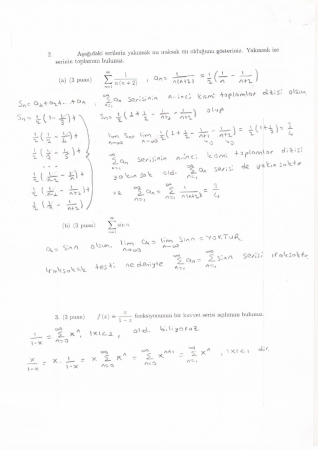 2. Aşağıdaki serilerin yakınsak mı ıraksak mı olduğunu gösteriniz. Yakınsak ise
serinin toplamını bulunuz.
(a) (3 puan) ∑_{n=1}^{∞} 1/(n(n+2)) , aₙ = 1/(n(n+2)) = 1/2 (1/n - 1/(n+2))
Sₙ = a₁+a₂+...+aₙ , ∑_{n=1}^{∞} aₙ serisinin n-inci kısmi toplamlar dizisi olsun
Sₙ = 1/2 (1 - 1/3) +
1/2 (1/2 - 1/4) +
1/2 (1/3 - 1/5) +
...
1/2 (1/(n-2) - 1/n) +
1/2 (1/(n-1) - 1/(n+1)) +
1/2 (1/n - 1/(n+2))
Sₙ = 1/2 (1 + 1/2 - 1/(n+1) - 1/(n+2)) olup
lim_{n→∞} Sₙ = lim_{n→∞} 1/2 (1 + 1/2 - 1/(n+1) - 1/(n+2)) = 1/2 (1 + 1/2) = 3/4
∑_{n=1}^{∞} aₙ serisinin n.inci kısmi toplamlar dizisi
yakınsak old. ∑_{n=1}^{∞} aₙ serisi de yakınsaktır
ve ∑_{n=1}^{∞} aₙ = ∑_{n=1}^{∞} 1/(n(n+2)) = 3/4
(b) (3 puan) ∑_{n=1}^{∞} sin n
aₙ = sin n olsun. lim_{n→∞} aₙ = lim_{n→∞} sin n = YOKTUR
Iraksaklık testi nedeniyle ∑_{n=1}^{∞} aₙ = ∑_{n=1}^{∞} sin n serisi ıraksaktır
3. (3 puan) f(x) = x/(1-x) fonksiyonunun bir kuvvet serisi açılımını bulunuz.
1/(1-x) = ∑_{n=0}^{∞} xⁿ , |x|<1 , old. biliyoruz
x/(1-x) = x · 1/(1-x) = x ∑_{n=0}^{∞} xⁿ = ∑_{n=0}^{∞} xⁿ⁺¹ = ∑_{n=1}^{∞} xⁿ , |x|<1 dir.